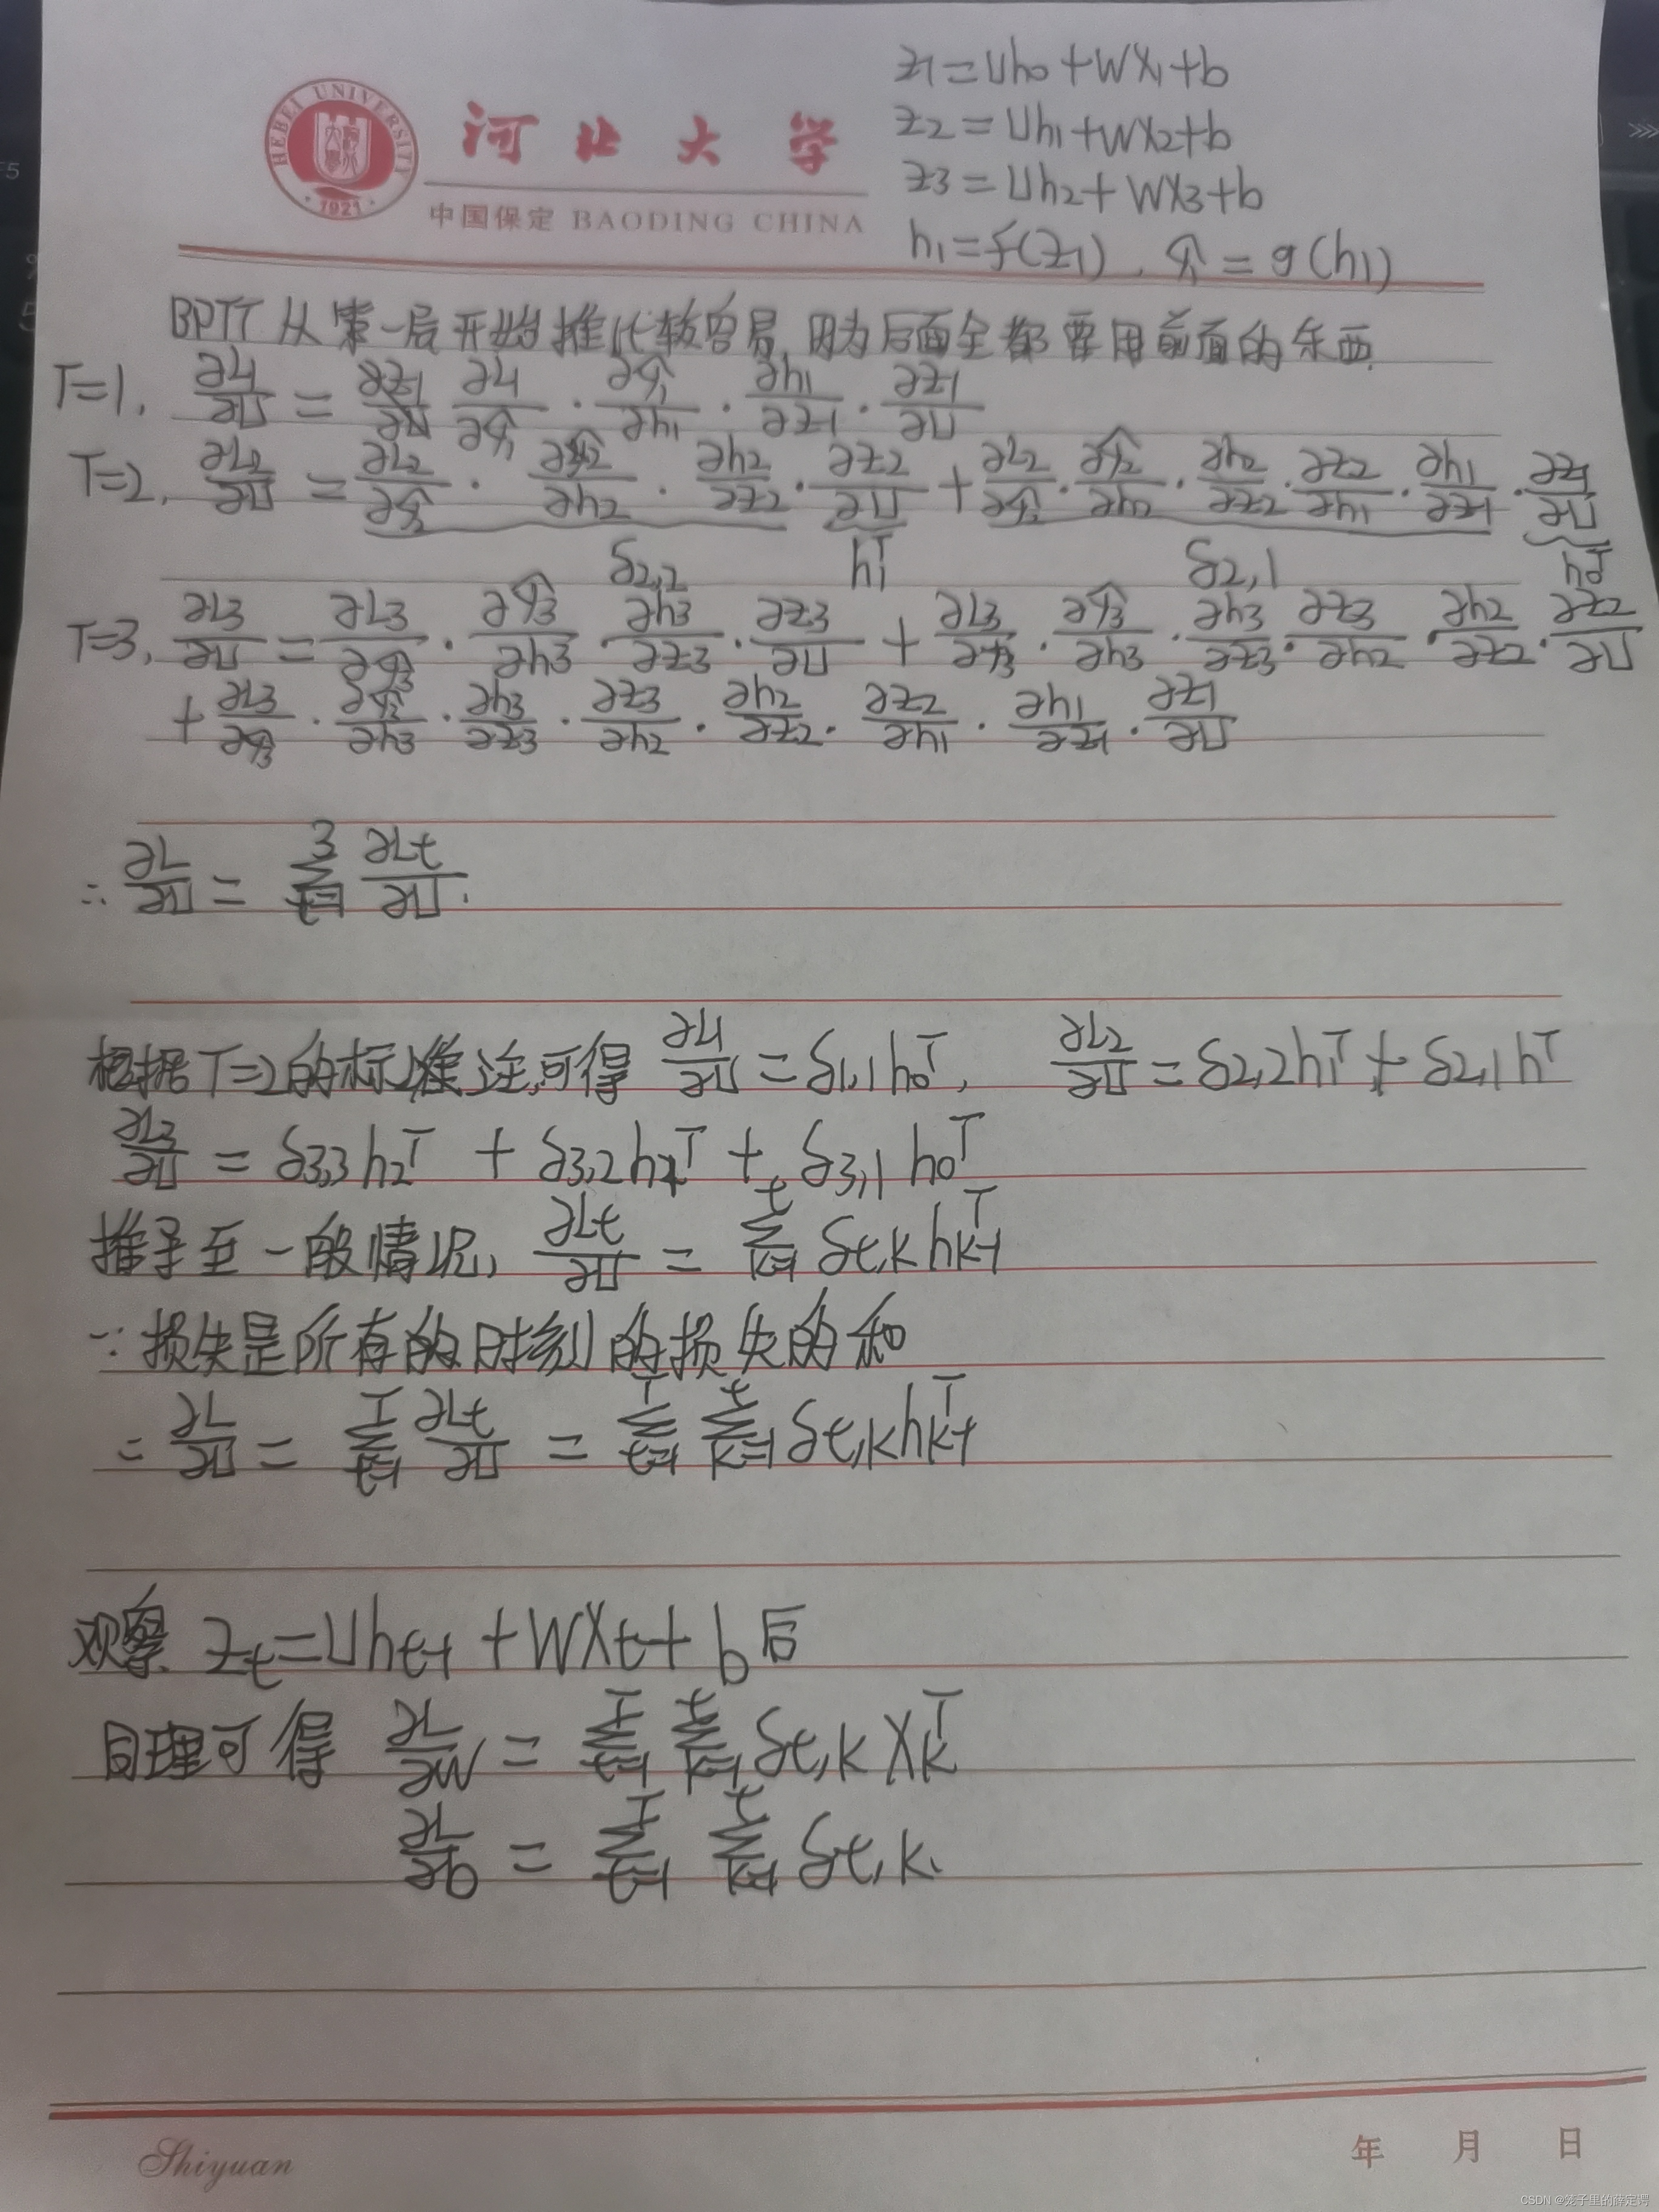 z₁=Uh₀+WX₁+b
HEBEI UNIVERSITY
1921
河北大学
z₂=Uh₁+WX₂+b
z₃=Uh₂+WX₃+b
中国保定 BAODING CHINA
h₁=f(z₁), ŷ₁=g(h₁)
BPTT从第一层开始推比较容易,因为后面全都要用前面的东西.
T=1, ∂L₁/∂U = ∂L₁/∂ŷ₁ · ∂ŷ₁/∂h₁ · ∂h₁/∂z₁ · ∂z₁/∂U
T=2, ∂L₂/∂U = ∂L₂/∂ŷ₂ · ∂ŷ₂/∂h₂ · ∂h₂/∂z₂ · ∂z₂/∂U + ∂L₂/∂ŷ₂ · ∂ŷ₂/∂h₂ · ∂h₂/∂z₂ · ∂z₂/∂h₁ · ∂h₁/∂z₁ · ∂z₁/∂U
δ₂,₂ h₁ᵀ δ₂,₁ h₀ᵀ
T=3, ∂L₃/∂U = ∂L₃/∂ŷ₃ · ∂ŷ₃/∂h₃ · ∂h₃/∂z₃ · ∂z₃/∂U + ∂L₃/∂ŷ₃ · ∂ŷ₃/∂h₃ · ∂h₃/∂z₃ · ∂z₃/∂h₂ · ∂h₂/∂z₂ · ∂z₂/∂U
+ ∂L₃/∂ŷ₃ · ∂ŷ₃/∂h₃ · ∂h₃/∂z₃ · ∂z₃/∂h₂ · ∂h₂/∂z₂ · ∂z₂/∂h₁ · ∂h₁/∂z₁ · ∂z₁/∂U
∴ ∂L/∂U = Σ_{t=1}^{3} ∂Lt/∂U.
根据T=2的标准可得 ∂L₁/∂U = δ₁,₁h₀ᵀ, ∂L₂/∂U = δ₂,₂h₁ᵀ + δ₂,₁hᵀ
∂L₃/∂U = δ₃,₃h₂ᵀ + δ₃,₂h₁ᵀ + δ₃,₁h₀ᵀ
推导至一般情况, ∂Lt/∂U = Σ_{k=1}^{t} δt,k h_{k-1}ᵀ
∵损失是所有的时刻的损失的和
= ∂L/∂U = Σ_{t=1}^{T} ∂Lt/∂U = Σ_{t=1}^{T} Σ_{k=1}^{t} δt,k h_{k-1}ᵀ
观察 Zt=Uh_{t-1}+WXt+b后
同理可得 ∂L/∂W = Σ_{t=1}^{T} Σ_{k=1}^{t} δt,k X_kᵀ
∂L/∂b = Σ_{t=1}^{T} Σ_{k=1}^{t} δt,k.
Shiyuan
年 月 日
CSDN @笼子里的薛定谔